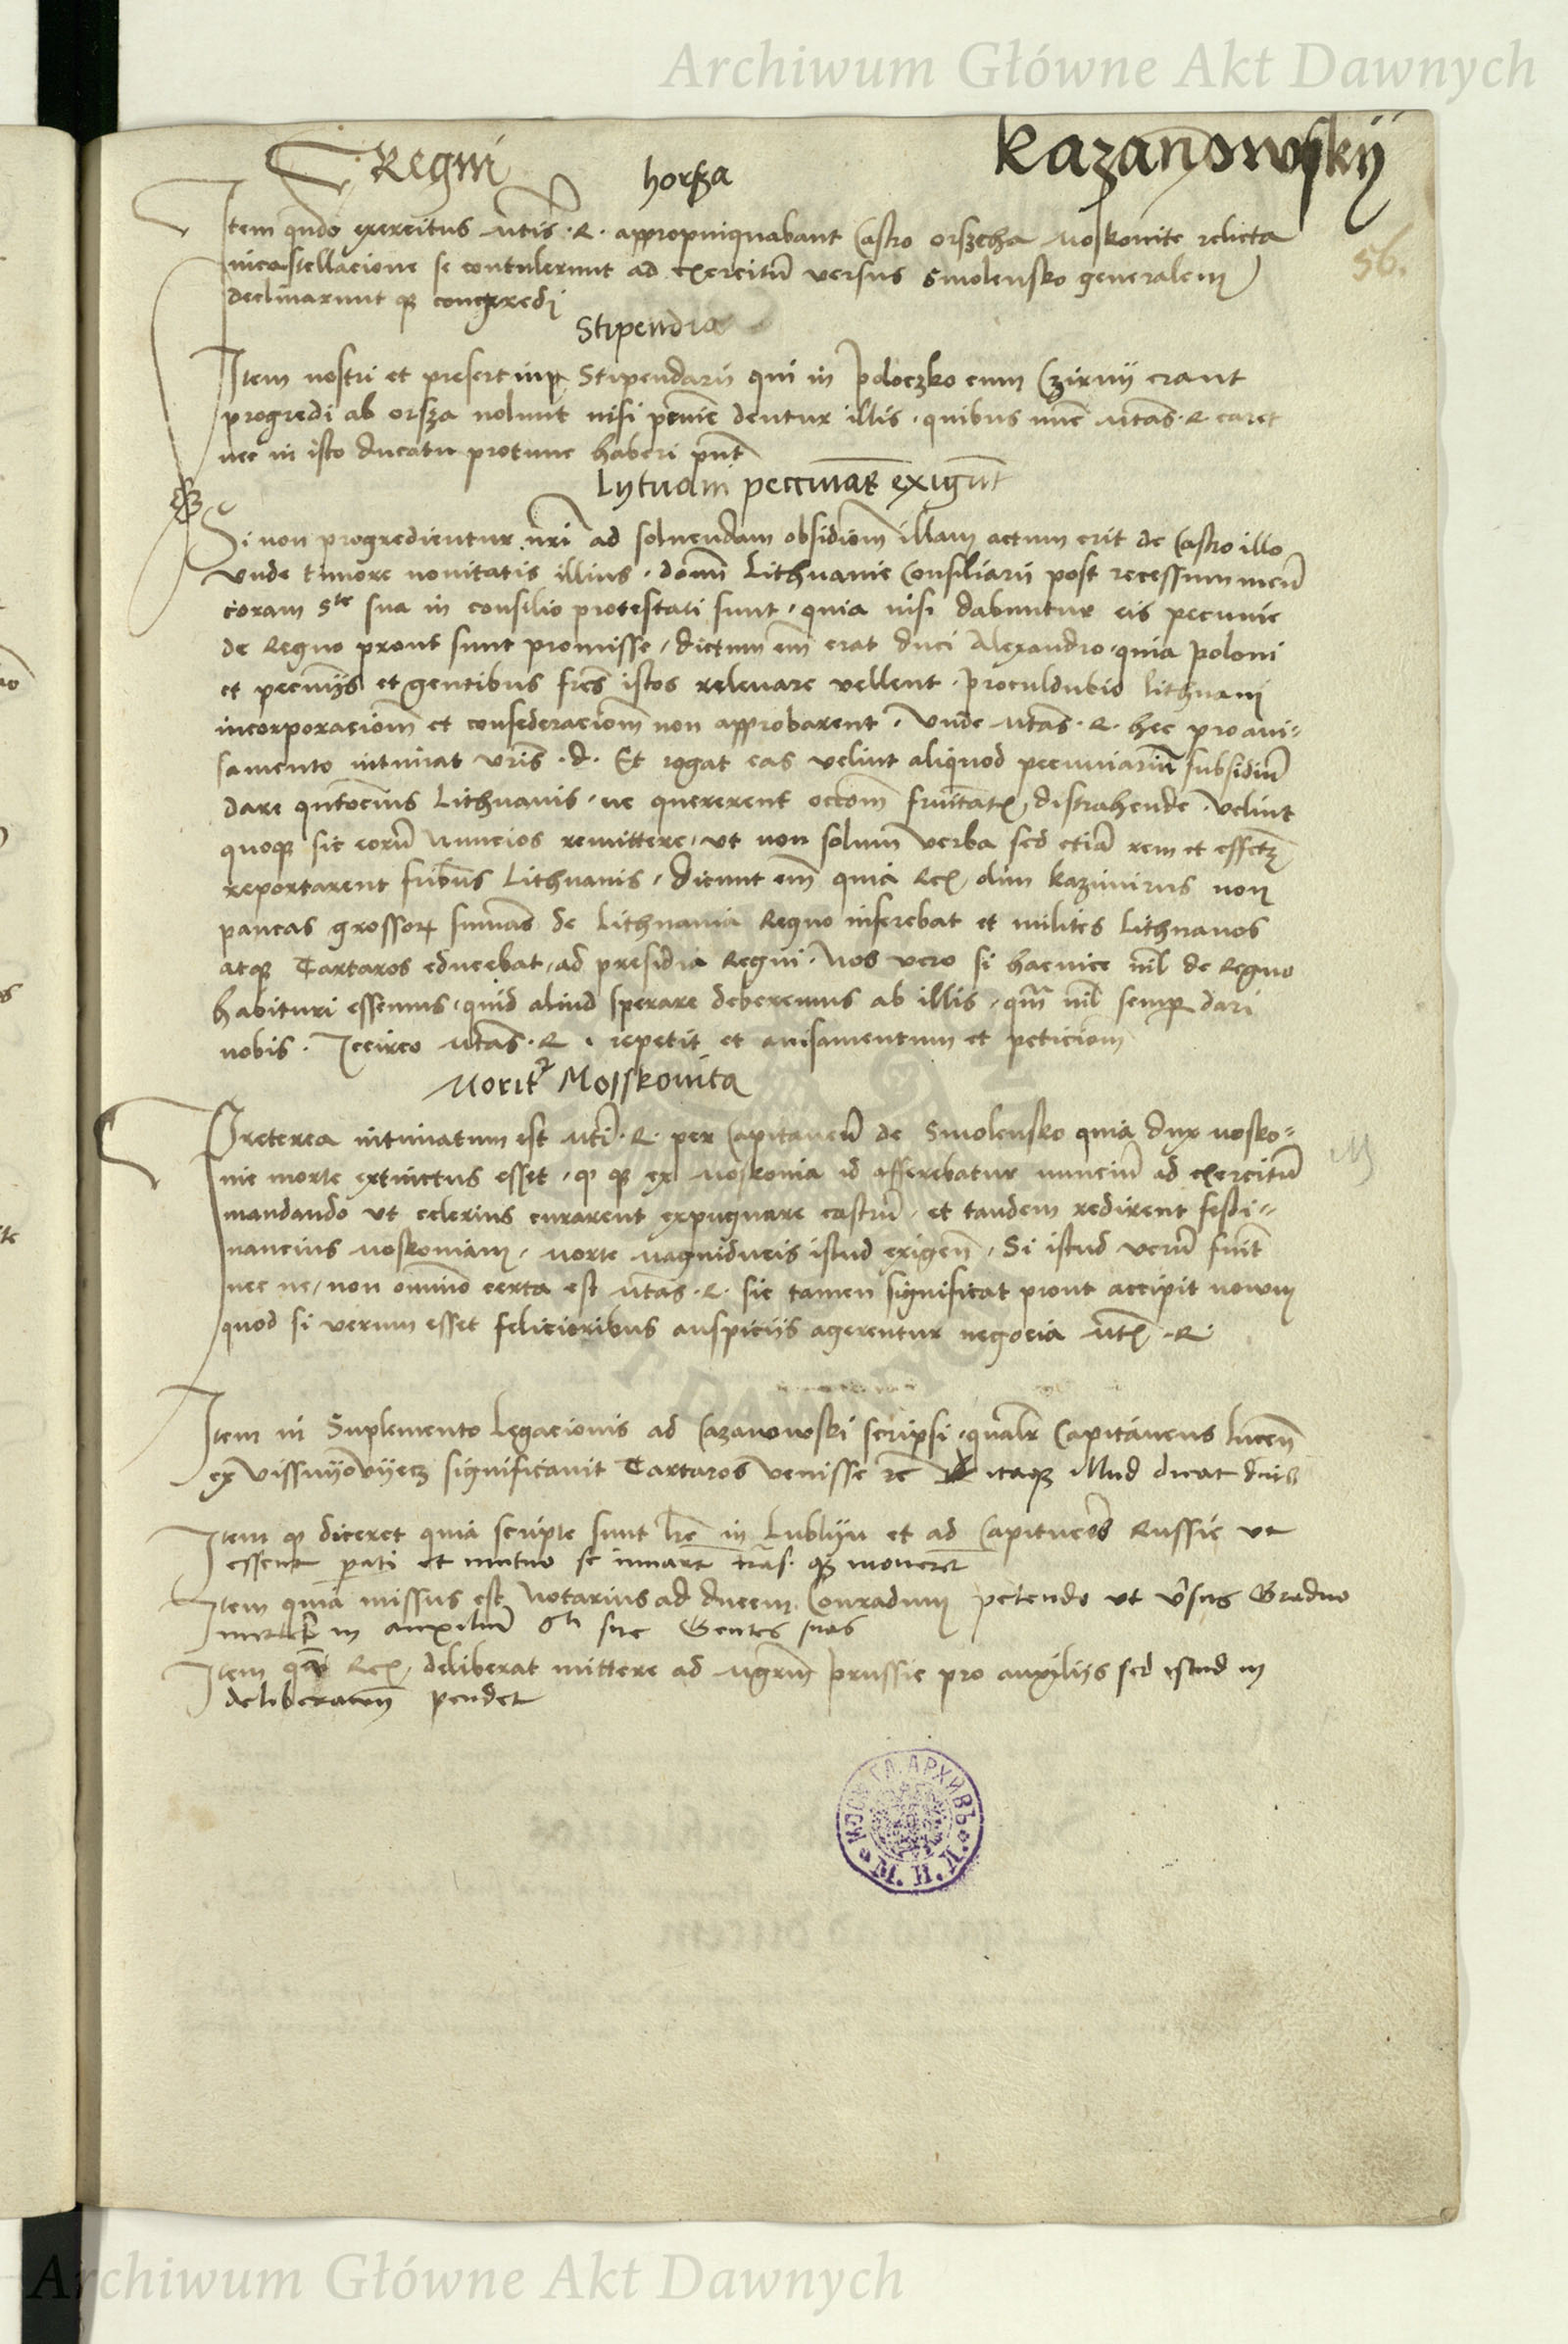 Archiwum Główne Akt Dawnych
Regni
Kazanowskij
horsza
56.
Item qn̄do exercitus Mtis̄ R. appropinquabant Castro Orszcha Moskovite relicta
incastellacione se contulerunt ad exercitū versus Smolensko generalem
declinarunt q̨ congredi
Stipendia
Item nostri et presertim Stipendarii qui in Poloczko cum Czirnij erant
progredi ab orsza nolunt nisi pecu̅ie dentur illis . quibus nu̅c Mtas̄ . R caret
nec in isto ducatu protunc haberi pn̄t
Lytuani peccuniar̄ exigu̅t
Si non progredientur nr̄i ad soluendam obsidiom̄ illam actum erit de Castro illo
Vnde timore nouitatis illius . domī Lithuanie Consiliarii post recessum meū
coram Ste sua in consilio protestati sunt . quia nisi dabuntur eis pecunie
de Regno prout sunt promisse / dictum em̄ erat duci Alexandro . quia Poloni
et pecunijs et gentibus frēs istos releuare vellent . proculdubio lithuani
incorporaciom̄ et confederaciom̄ non approbarent . Vnde Mtas̄ . R . hec pro aui=
samento intimat vr̄is . d . Et rogat eas velint aliquod pecuniariū subsidiū
dare qn̄tocius Lithuanis . ne quererent occom̄ frn̄itatis distrahende . Velint
quoq̨ sic eorū Nuncios remittere . vt non solum verba sed etiā rem et effectū
reportarent fribus̄ Lithuanis . dicunt em̄ quia Rex olim Kazimirus non
paucas grossor̨ summas̄ de Lithuania Regno inferebat et milites Lithuanos
atq̨ Tartaros educebat . ad presidia Regni . Nos vero si hacvice nil̄ de Regno
habituri essemus . quid aliud sperare deberemus ab illis . qm̄ nil̄ semp dari
nobis . Iccirco Mtas̄ . R . repetit et auisamentum et peticiom̄
Morit2 Mosskouita
Preterea intimatum est Mti . R . per Capitaneū de Smolensko quia dux Mosko=
uie morte extinctus esset . q̨ q̨ ex Moskouia id afferebatur nunciū ad exercitū
mandando vt celerius curarent expugnare castrū . et tandem redirent festi=
nancius Moskouiam . Morte Magniducis istud exigen̄ . Si istud verū fuit̄
nec ne / non om̄ino certa est Mtas̄ . R . sic tamen significat prout accipit nouum
quod si verum esset felicioribus auspiciis agerentur negocia Mtis̄ . R .
Item in Suplemento Legacionis ad Cazanowski scripsi . qualr̄ Capitaneus lucen̄
ex significauit Tartaros venisse rc̄ itaq̨ illud dicat dn̄is
Item q̨ diceret quia scripte sunt lr̄e in Lublijn et ad Capitneos̄ Russie vt
essent p̄ati et mutuo se iuuare
Item quia missus est Notarius ad ducem Conradum petendo vt v̄sus Grodno
in auxiliū Sti sue Gentes suas
Item Rex deliberat mittere ad Mgrm̄ Prussie pro auxilijs sed istud in
deliberacion̄ pendet
М. И. Д.
ГЛ. АРХИВЪ
Archiwum Główne Akt Dawnych